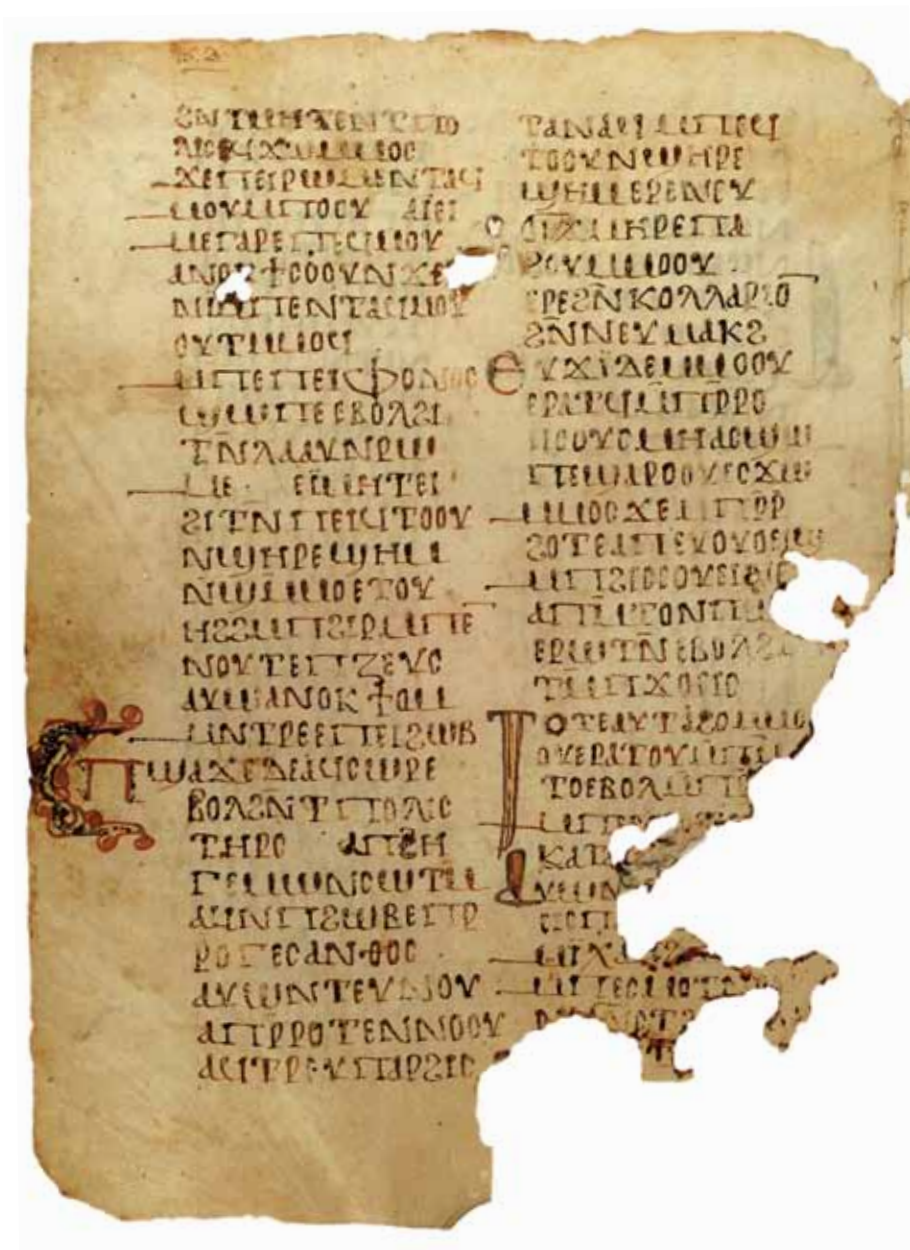 ϩⲛⲧⲙⲏⲧⲉⲛⲧⲡⲟ
ⲗⲓⲥⲉϥϫⲱⲙⲙⲟⲥ
ϫⲉⲡⲉⲓⲣⲱⲙⲉⲛⲧⲁϥ
ⲙⲟⲩⲙⲡⲟⲟⲩ ⲁⲓⲉⲓ
ⲙⲉⲅⲁⲣⲉⲡⲉϥⲙⲟⲩ
ⲁⲛⲟⲕϯⲥⲟⲟⲩⲛϫⲉ
ⲛⲓⲙⲡⲉⲛⲧⲁϥⲙⲟⲩ
ⲟⲩⲧⲙⲙⲟϥ
ⲙⲡⲉⲡⲉⲓⲫⲟⲛⲟⲥ
ϣⲱⲡⲉⲉⲃⲟⲗϩⲓ
ⲧⲛ̄ⲗⲁⲁⲩⲛⲣⲱ
ⲙⲉ· ⲉⲓⲙⲏⲧⲉⲓ
ϩⲓⲧⲛⲡⲉⲓϥⲧⲟⲟⲩ
ⲛϣⲏⲣⲉϣⲏⲙ
ⲛϣⲙⲙⲟⲉⲧⲟⲩ
ⲏϩϩⲙⲡϩⲓⲣⲙⲡⲉ
ⲛⲟⲩⲧⲉⲡⲍⲉⲩⲥ
ⲁⲩⲱⲁⲛⲟⲕϯⲟⲙ
ⲙⲛⲧⲣⲉⲉⲡⲉⲓϩⲱⲃ
ⲡϣⲁϫⲉⲇⲉⲁϥⲥⲱⲣⲉ
ⲃⲟⲗϩⲛⲧⲡⲟⲗⲓⲥ
ⲧⲏⲣⲥ ⲁⲡϩⲏ
ⲅⲉⲙⲱⲛⲥⲱⲧⲙ
ⲁϥⲛⲡϩⲱⲃⲉⲡⲣ
ⲣⲟⲅⲉⲥⲁⲛⲑⲟⲥ·
ⲁⲩⲱⲛⲧⲉⲩⲛⲟⲩ
ⲁⲡⲣⲣⲟⲧⲉⲛⲛⲟⲟⲩ
ⲁϥⲧⲣⲉⲩⲡⲁⲣϩⲓⲥ
ⲧⲁⲛⲁϥⲙⲡⲉϥ
ⲧⲟⲟⲩⲛϣⲏⲣⲉ
ϣⲏⲙⲉⲣⲉⲛⲉⲩ
ϭⲓϫⲙⲏⲣⲉⲡⲁ
ϩⲟⲩⲙⲙⲟⲟⲩ·
ⲉⲣⲉϩⲛ̄ⲕⲟⲗⲗⲁⲣⲓⲟ̅
ϩⲛ̄ⲛⲉⲩⲙⲁⲕϩ
ⲉⲩϫⲓⲇⲉⲙⲙⲟⲟⲩ
ⲉⲣⲁⲧϥⲙⲡⲣ̄ⲣⲟ
ⲓⲥⲟⲩⲥⲙⲏⲁⲥϣⲱ
ⲡⲉϣⲁⲣⲟⲟⲩⲉⲥϫⲱ
ⲙⲙⲟⲥϫⲉⲙⲡⲣ̄ⲣ
ϩⲟⲧⲉⲁⲡⲉⲩⲟⲩⲟⲉⲓϣ
ⲙⲡϩⲓⲥⲉⲟⲩⲉⲓⲛⲉ
ⲁⲡⲙ̄ⲧⲟⲛⲡⲱ
ⲉⲣⲱⲧⲛ̄ⲉⲃⲟⲗϩⲓ
ⲧⲙ̄ⲡϫⲟⲉⲓⲥ
ⲧⲟⲧⲉⲁⲩⲧⲁϩⲟⲙⲙⲟ
ⲟⲩⲉⲣⲁⲧⲟⲩⲙⲡⲙ̄
ⲧⲟⲉⲃⲟⲗⲙⲡ
ⲕⲁⲧⲁ
ⲁⲩⲱⲛ